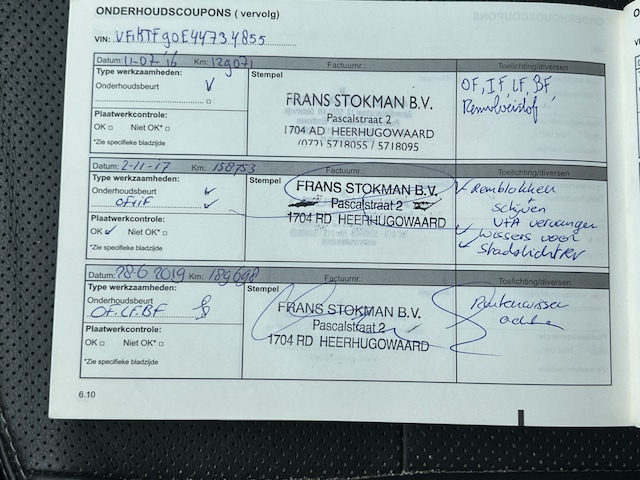 ONDERHOUDSCOUPONS ( vervolg)
VIN: VF1KTFG0E44734855
Datum: 11-07-16 Km: 129071 Factuurnr.: Toelichting/diversen
Type werkzaamheden:
Onderhoudsbeurt
Plaatwerkcontrole:
OK Niet OK*
*Zie specifieke bladzijde
Stempel
FRANS STOKMAN B.V.
Pascalstraat 2
1704 AD HEERHUGOWAARD
(072) 5718055 / 5718095
OF, IF, LF, BF
Remvloeistof
Datum: 2-11-17 Km: 158753 Factuurnr.: Toelichting/diversen
Type werkzaamheden:
Onderhoudsbeurt
OF+IF
Plaatwerkcontrole:
OK Niet OK*
*Zie specifieke bladzijde
Stempel
FRANS STOKMAN B.V.
Pascalstraat 2
1704 RD HEERHUGOWAARD
Remblokken
+
Schijven
V+A vervangen
Wissers voor
Stadslichter
Datum: 28-6-2019 Km: 189698 Factuurnr.: Toelichting/diversen
Type werkzaamheden:
Onderhoudsbeurt
OF.LF.BF
Plaatwerkcontrole:
OK Niet OK*
*Zie specifieke bladzijde
Stempel
FRANS STOKMAN B.V.
Pascalstraat 2
1704 RD HEERHUGOWAARD
Ruitenwisser
achter
6.10